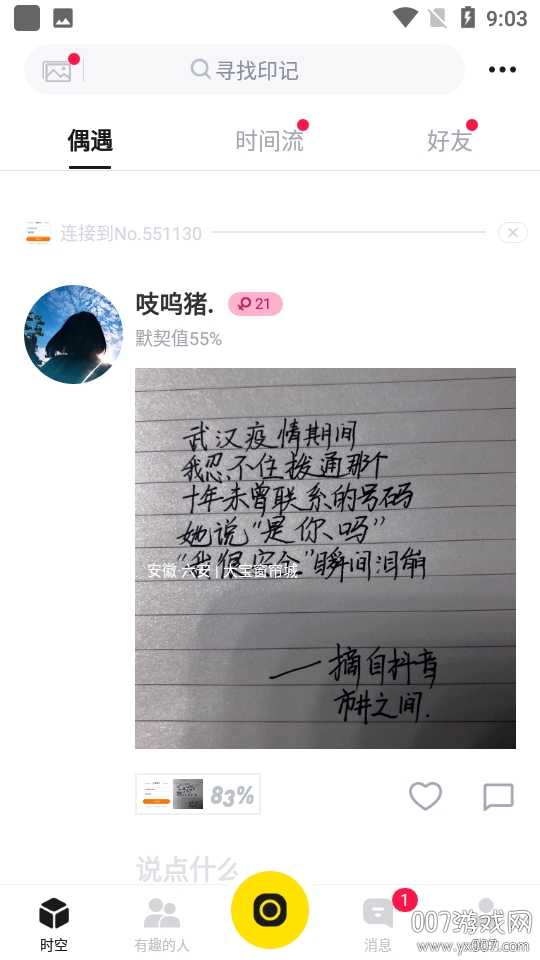 9:03
寻找印记
偶遇
时间流
好友
连接到No.551130
吱呜猪.
21
默契值55%
武汉疫情期间
我忍不住拨通那个
十年未曾联系的号码
她说“是你吗”
“我很安全”瞬间泪崩
安徽·六安 | 大宝窗帘城
——摘自抖音
市井之间.
83%
说点什么
时空
有趣的人
消息
1
007游戏网
www.yx007.com